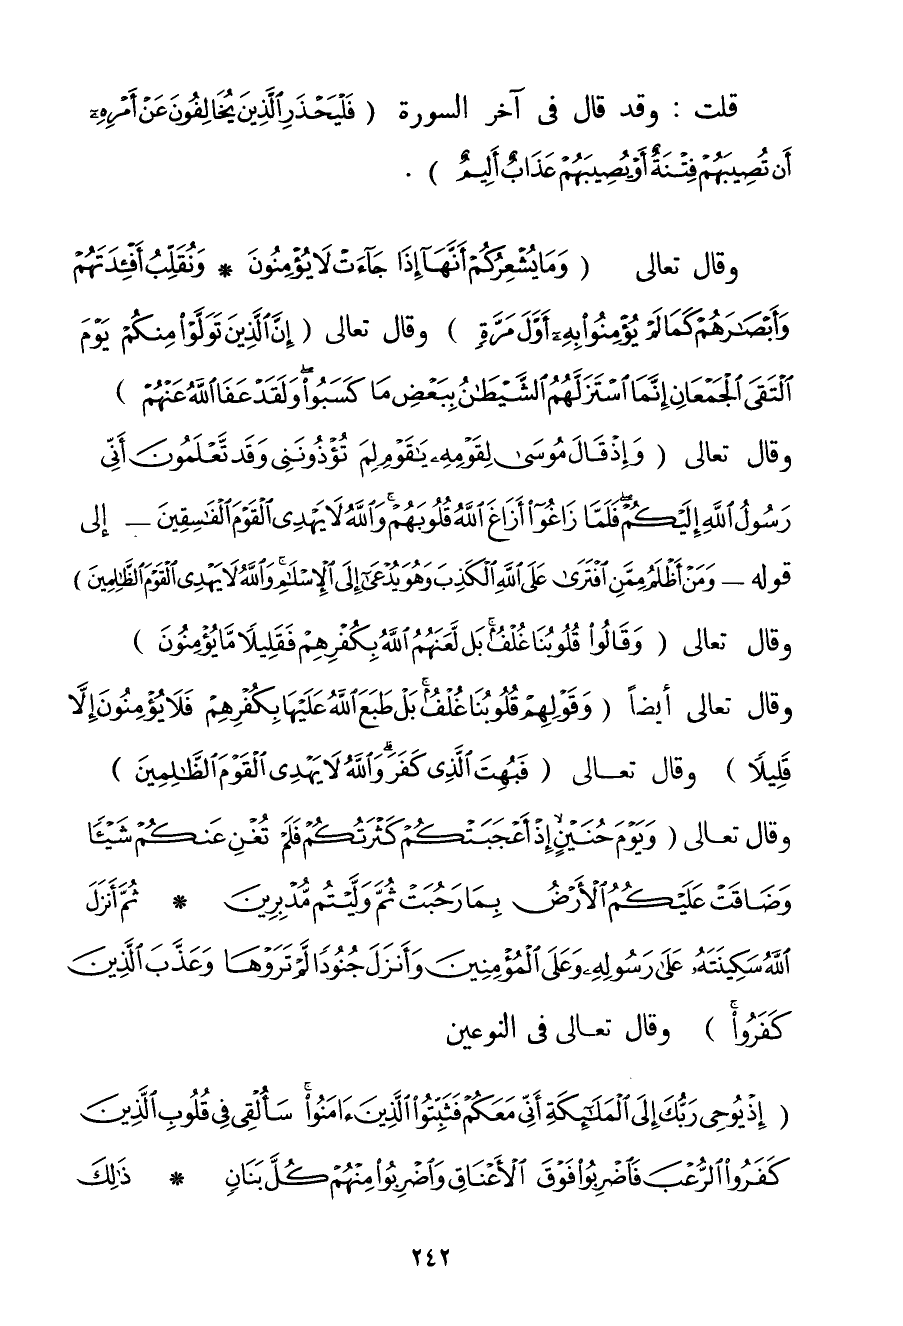 قلت : وقد قال فى آخر السورة ( فَلْيَحْذَرِ ٱلَّذِينَ يُخَالِفُونَ عَنْ أَمْرِهِۦٓ
أَن تُصِيبَهُمْ فِتْنَةٌ أَوْ يُصِيبَهُمْ عَذَابٌ أَلِيمٌ ) .
وقال تعالى ( وَمَا يُشْعِرُكُمْ أَنَّهَآ إِذَا جَآءَتْ لَا يُؤْمِنُونَ * وَنُقَلِّبُ أَفْـِٔدَتَهُمْ
وَأَبْصَٰرَهُمْ كَمَا لَمْ يُؤْمِنُوا۟ بِهِۦٓ أَوَّلَ مَرَّةٍ ) وقال تعالى ( إِنَّ ٱلَّذِينَ تَوَلَّوْا۟ مِنكُمْ يَوْمَ
ٱلْتَقَى ٱلْجَمْعَانِ إِنَّمَا ٱسْتَزَلَّهُمُ ٱلشَّيْطَٰنُ بِبَعْضِ مَا كَسَبُوا۟ ۖ وَلَقَدْ عَفَا ٱللَّهُ عَنْهُمْ )
وقال تعالى ( وَإِذْ قَالَ مُوسَىٰ لِقَوْمِهِۦ يَٰقَوْمِ لِمَ تُؤْذُونَنِى وَقَد تَّعْلَمُونَ أَنِّى
رَسُولُ ٱللَّهِ إِلَيْكُمْ ۖ فَلَمَّا زَاغُوٓا۟ أَزَاغَ ٱللَّهُ قُلُوبَهُمْ ۚ وَٱللَّهُ لَا يَهْدِى ٱلْقَوْمَ ٱلْفَٰسِقِينَ ــ إلى
قوله ــ وَمَنْ أَظْلَمُ مِمَّنِ ٱفْتَرَىٰ عَلَى ٱللَّهِ ٱلْكَذِبَ وَهُوَ يُدْعَىٰٓ إِلَى ٱلْإِسْلَٰمِ ۚ وَٱللَّهُ لَا يَهْدِى ٱلْقَوْمَ ٱلظَّٰلِمِينَ )
وقال تعالى ( وَقَالُوا۟ قُلُوبُنَا غُلْفٌۢ ۚ بَل لَّعَنَهُمُ ٱللَّهُ بِكُفْرِهِمْ فَقَلِيلًا مَّا يُؤْمِنُونَ )
وقال تعالى أيضاً ( وَقَوْلِهِمْ قُلُوبُنَا غُلْفٌۢ ۚ بَلْ طَبَعَ ٱللَّهُ عَلَيْهَا بِكُفْرِهِمْ فَلَا يُؤْمِنُونَ إِلَّا
قَلِيلًا ) وقال تعـالى ( فَبُهِتَ ٱلَّذِى كَفَرَ ۗ وَٱللَّهُ لَا يَهْدِى ٱلْقَوْمَ ٱلظَّٰلِمِينَ )
وقال تعـالى ( وَيَوْمَ حُنَيْنٍ ۙ إِذْ أَعْجَبَتْكُمْ كَثْرَتُكُمْ فَلَمْ تُغْنِ عَنكُمْ شَيْـًٔا
وَضَاقَتْ عَلَيْكُمُ ٱلْأَرْضُ بِمَا رَحُبَتْ ثُمَّ وَلَّيْتُم مُّدْبِرِينَ * ثُمَّ أَنزَلَ
ٱللَّهُ سَكِينَتَهُۥ عَلَىٰ رَسُولِهِۦ وَعَلَى ٱلْمُؤْمِنِينَ وَأَنزَلَ جُنُودًا لَّمْ تَرَوْهَا وَعَذَّبَ ٱلَّذِينَ
كَفَرُوا۟ ۚ ) وقال تعـالى فى النوعين
( إِذْ يُوحِى رَبُّكَ إِلَى ٱلْمَلَٰٓئِكَةِ أَنِّى مَعَكُمْ فَثَبِّتُوا۟ ٱلَّذِينَ ءَامَنُوا۟ ۚ سَأُلْقِى فِى قُلُوبِ ٱلَّذِينَ
كَفَرُوا۟ ٱلرُّعْبَ فَٱضْرِبُوا۟ فَوْقَ ٱلْأَعْنَاقِ وَٱضْرِبُوا۟ مِنْهُمْ كُلَّ بَنَانٍ * ذَٰلِكَ
٢٤٢